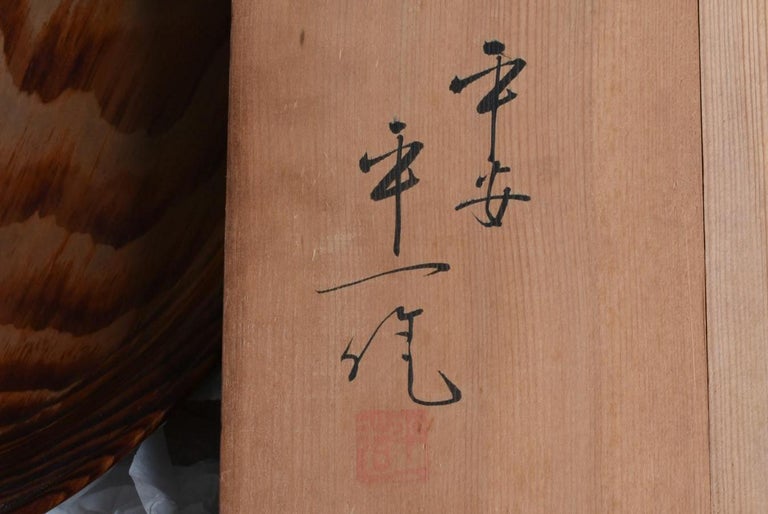 平安
平一作